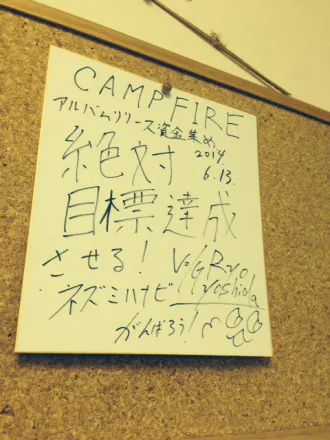 CAMPFIRE
アルバムリリース資金集め
絶対 2014.
6.13.
目標達成
させる! Vo/G Ryo
ネズミハナビ Yoshida
がんばろう!